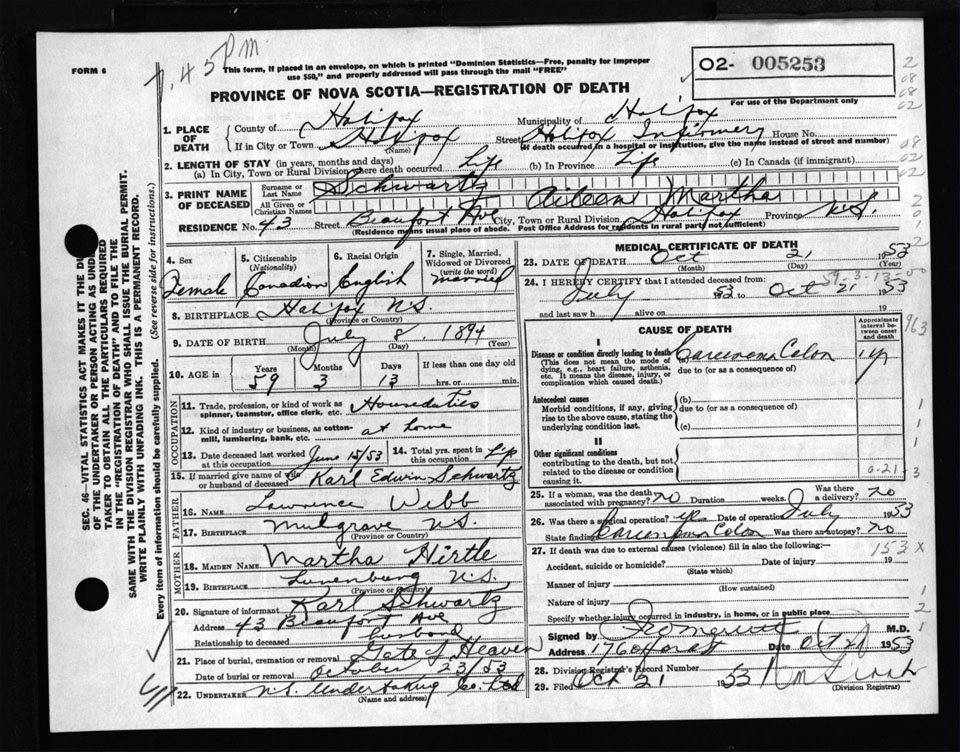 7.45 P.M.
FORM 6
This form, if placed in an envelope, on which is printed "Dominion Statistics—Free, penalty for improper
use $50," and properly addressed will pass through the mail "FREE"
O2- 005253
For use of the Department only
PROVINCE OF NOVA SCOTIA—REGISTRATION OF DEATH
1. PLACE OF DEATH
County of Halifax Municipality of Halifax
If in City or Town Halifax (Name) Street Halifax Infirmery House No.
(If death occurred in a hospital or institution, give the name instead of street and number)
2. LENGTH OF STAY (in years, months and days)
(a) In City, Town or Rural Division where death occurred Life (b) In Province Life (c) In Canada (if immigrant)
3. PRINT NAME OF DECEASED
Surname or Last Name Schwartz
All Given or Christian Names Aileen Martha
RESIDENCE No. 43 Street Beaufort Av City, Town or Rural Division Halifax Province N.S.
(Residence means usual place of abode. Post Office Address for residents in rural party not sufficient)
4. Sex Female
5. Citizenship (Nationality) Canadian
6. Racial Origin English
7. Single, Married, Widowed or Divorced (write the word) Married
8. BIRTHPLACE Halifax N.S.
(Province or Country)
9. DATE OF BIRTH July 8, 1894
(Month) (Day) (Year)
10. AGE Years 59 Months 3 Days 13 If less than one day old
hrs. or min.
OCCUPATION
11. Trade, profession, or kind of work as spinner, teamster, office clerk, etc. Houseduties
12. Kind of industry or business, as cotton-mill, lumbering, bank, etc. at home
13. Date deceased last worked at this occupation June 15/53 14. Total yrs. spent in this occupation Life
15. If married give name of wife or husband of deceased Karl Edwin Schwartz
FATHER
16. NAME Lawrence Webb
17. BIRTHPLACE Mulgrave N.S.
(Province or Country)
MOTHER
18. MAIDEN NAME Martha Hirtle
19. BIRTHPLACE Lunenburg N.S.
(Province or Country)
20. Signature of informant Karl Schwartz
Address 43 Beaufort Ave
Relationship to deceased husband
21. Place of burial, cremation or removal Gate of Heaven
Date of burial or removal October 23/53
22. UNDERTAKER N.S. Undertaking Co. Ltd
(Name and address)
MEDICAL CERTIFICATE OF DEATH
23. DATE OF DEATH Oct 21 1953
(Month) (Day) (Year)
59-3-13-00
24. I HEREBY CERTIFY that I attended deceased from:
July 1953 to Oct 21 1953
and last saw h alive on 19
CAUSE OF DEATH
Approximate interval between onset and death
I
Disease or condition directly leading to death Carcinoma Colon 1 y
(This does not mean the mode of dying, e.g., heart failure, asthenia, etc. It means the disease, injury, or complication which caused death.)
due to (or as a consequence of)
Antecedent causes
Morbid conditions, if any, giving rise to the above cause, stating the underlying condition last.
(b)
due to (or as a consequence of)
(c)
II
Other significant conditions
contributing to the death, but not related to the disease or condition causing it.
0-21
25. If a woman, was the death associated with pregnancy? no Duration weeks. Was there a delivery? no
26. Was there a surgical operation? yes Date of operation July 1953
State findings Carcinoma Colon Was there an autopsy? no
27. If death was due to external causes (violence) fill in also the following:—
153 x
Accident, suicide or homicide? Date of injury 19
(State which)
Manner of injury
(How sustained)
Nature of injury
Specify whether injury occurred in industry, in home, or in public place
Signed by M.D.
Address Date Oct 21 1953
28. Division Registrar's Record Number
29. Filed Oct 21 1953
(Division Registrar)
SEC. 46—VITAL STATISTICS ACT MAKES IT THE DU
OF THE UNDERTAKER OR PERSON ACTING AS UNDE
TAKER TO OBTAIN ALL THE PARTICULARS REQUIRED
IN THE "REGISTRATION OF DEATH" AND TO FILE THE
SAME WITH THE DIVISION REGISTRAR WHO SHALL ISSUE THE BURIAL PERMIT.
WRITE PLAINLY WITH UNFADING INK. THIS IS A PERMANENT RECORD.
Every item of information should be carefully supplied. (See reverse side for instructions.)